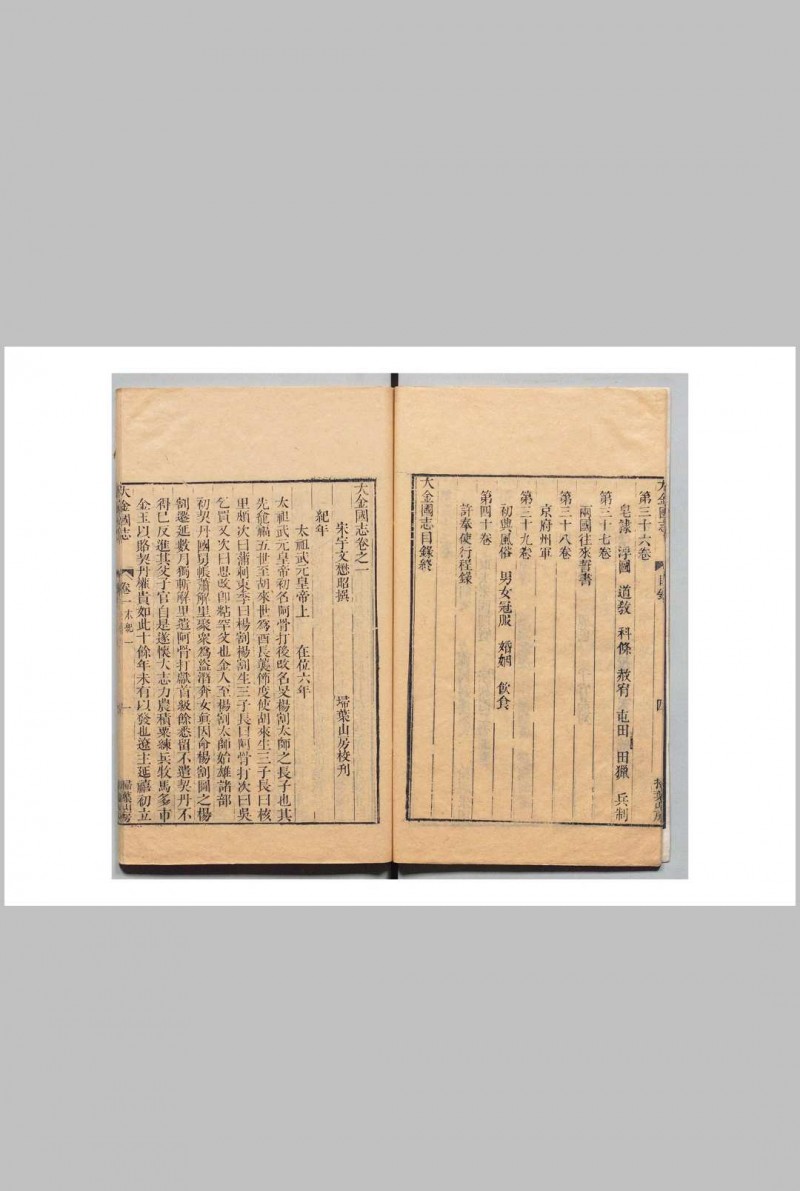 大金國志 目錄 四 掃葉山房
第三十六卷
皂隸 浮圖 道敎 科條 赦宥 屯田 田獵 兵制
第三十七卷
兩國往來誓書
第三十八卷
京府州軍
第三十九卷
初興風俗 男女冠服 婚姻 飲食
第四十卷
許奉使行程錄
大金國志目錄終
大金國志卷之一
宋宇文懋昭撰 掃葉山房校刋
紀年
太祖武元皇帝上 在位六年
太祖武元皇帝初名阿骨打後改名旻楊割太師之長子也其
先龕福五世至胡來世爲酋長襲節度使胡來生三子長曰核
里頗次曰蒲刺束季曰楊割楊割生三子長曰阿骨打次曰吳
乞買又次曰思改卽粘罕父也金人至楊割太師始雄諸部
初契丹國舅帳蕭解里聚衆爲盜潛奔女眞因命楊割圖之楊
割遷延數月獨斬解里遣阿骨打獻首級餘悉留不遣契丹不
得已反進其父子官自是遂懷大志力農積粟練兵牧馬多市
金玉以賂契丹權貴如此十餘年未有以發也遼主延禧初立
大金國志 卷一 太祖 一 掃葉山房